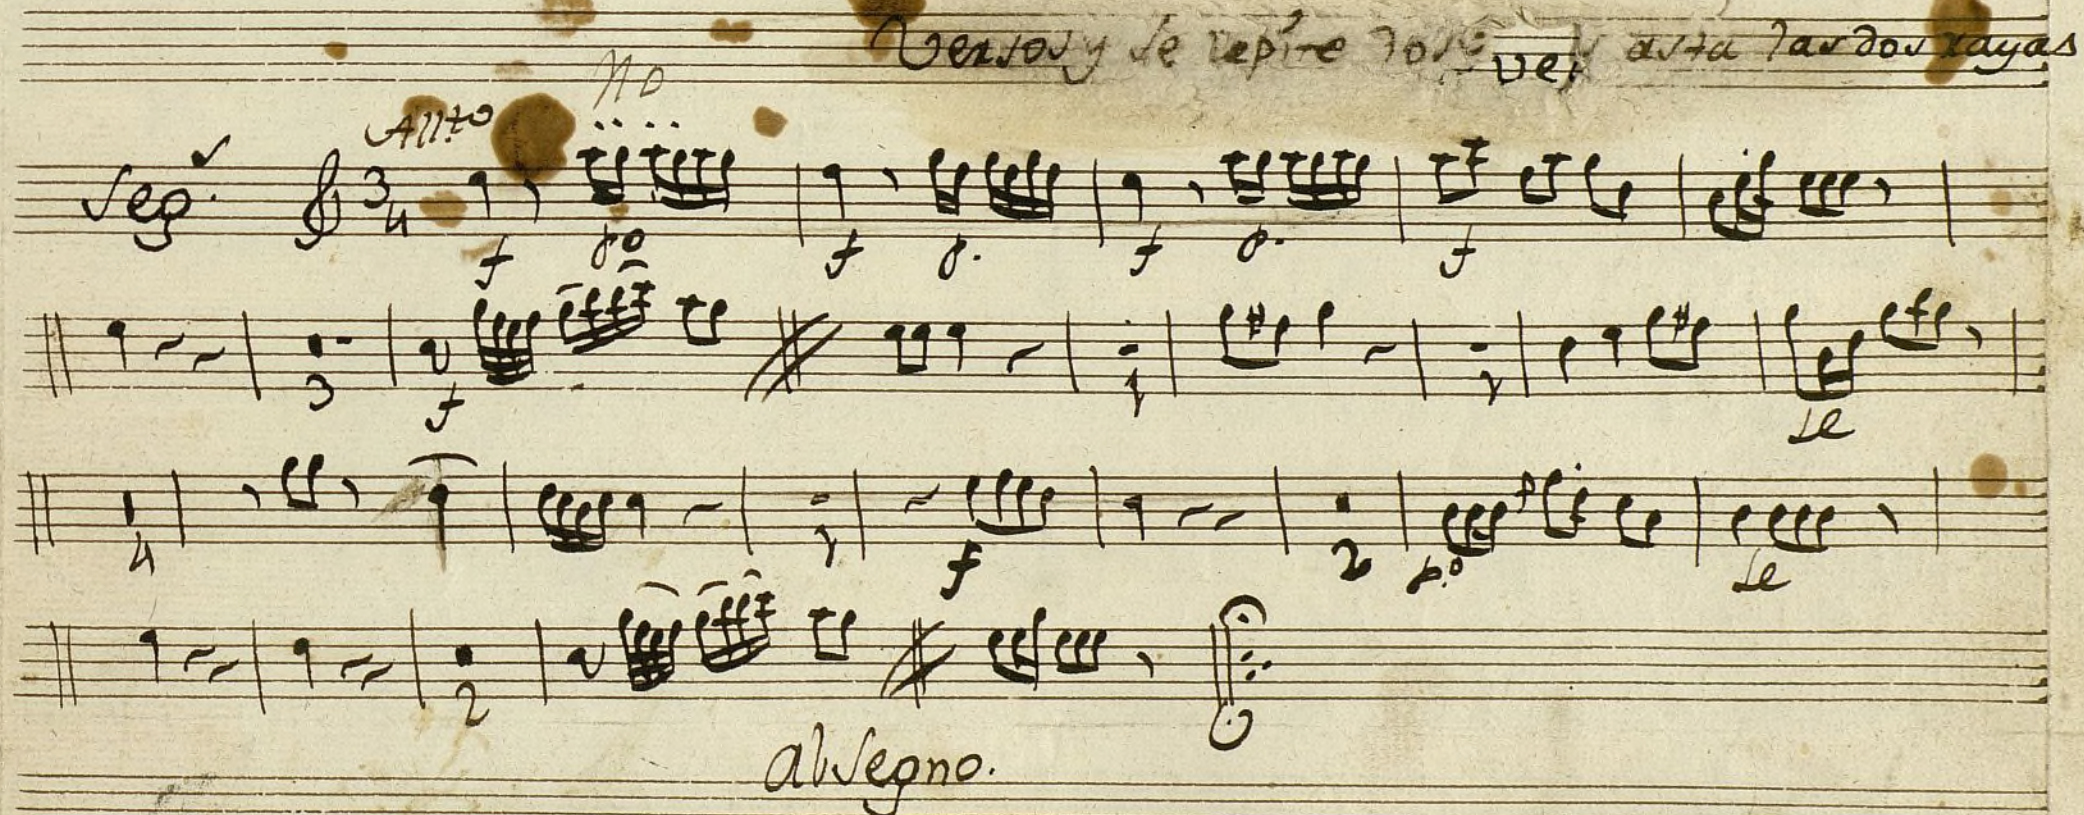 Versos y se repite dos vez asta las dos rayas
No
Allto
Seg.
3
4
f po f p. f p. f
3 f 1 1 se
4 1 f 2 p.o se
2
al Segno.